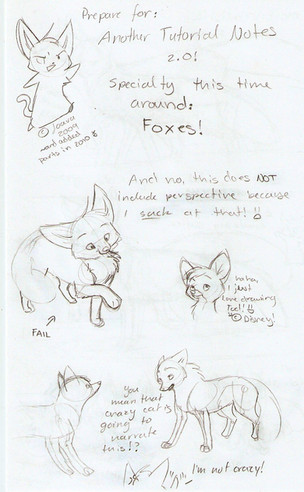 Prepare for:
Another Tutorial Notes
2.0!
Specialty this time
around:
Foxes!
© Joava
2009
and added
parts in 2010
And no, this does NOT
include perspective because
I suck at that!!
FAIL
haha,
I just
love drawing
Tod!!
© Disney!
You
mean that
crazy cat is
going to
narrate
this!?
I'm not crazy!